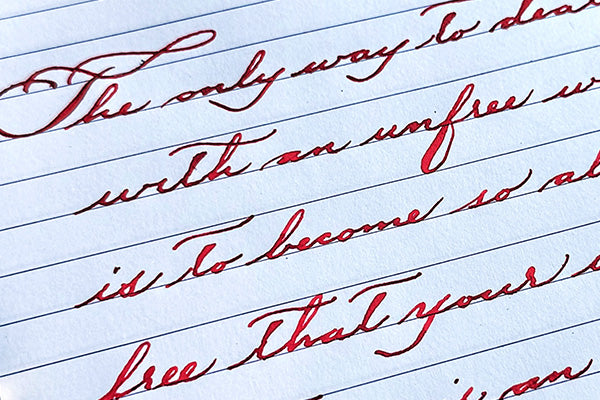 The only way to deal
with an unfree w
is to become so ab
free that your
is an